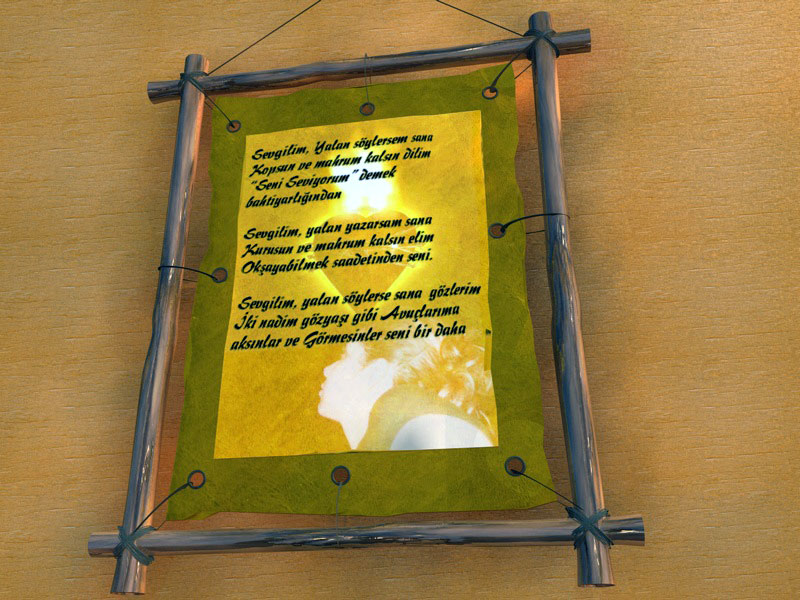 Sevgilim, Yalan söylersem sana
Kopsun ve mahrum kalsın dilim
"Seni Seviyorum" demek
bahtiyarlığından
Sevgilim, yalan yazarsam sana
Kurusun ve mahrum kalsın elim
Okşayabilmek saadetinden seni.
Sevgilim, yalan söylerse sana gözlerim
İki nadim gözyaşı gibi Avuçlarıma
aksınlar ve Görmesinler seni bir daha